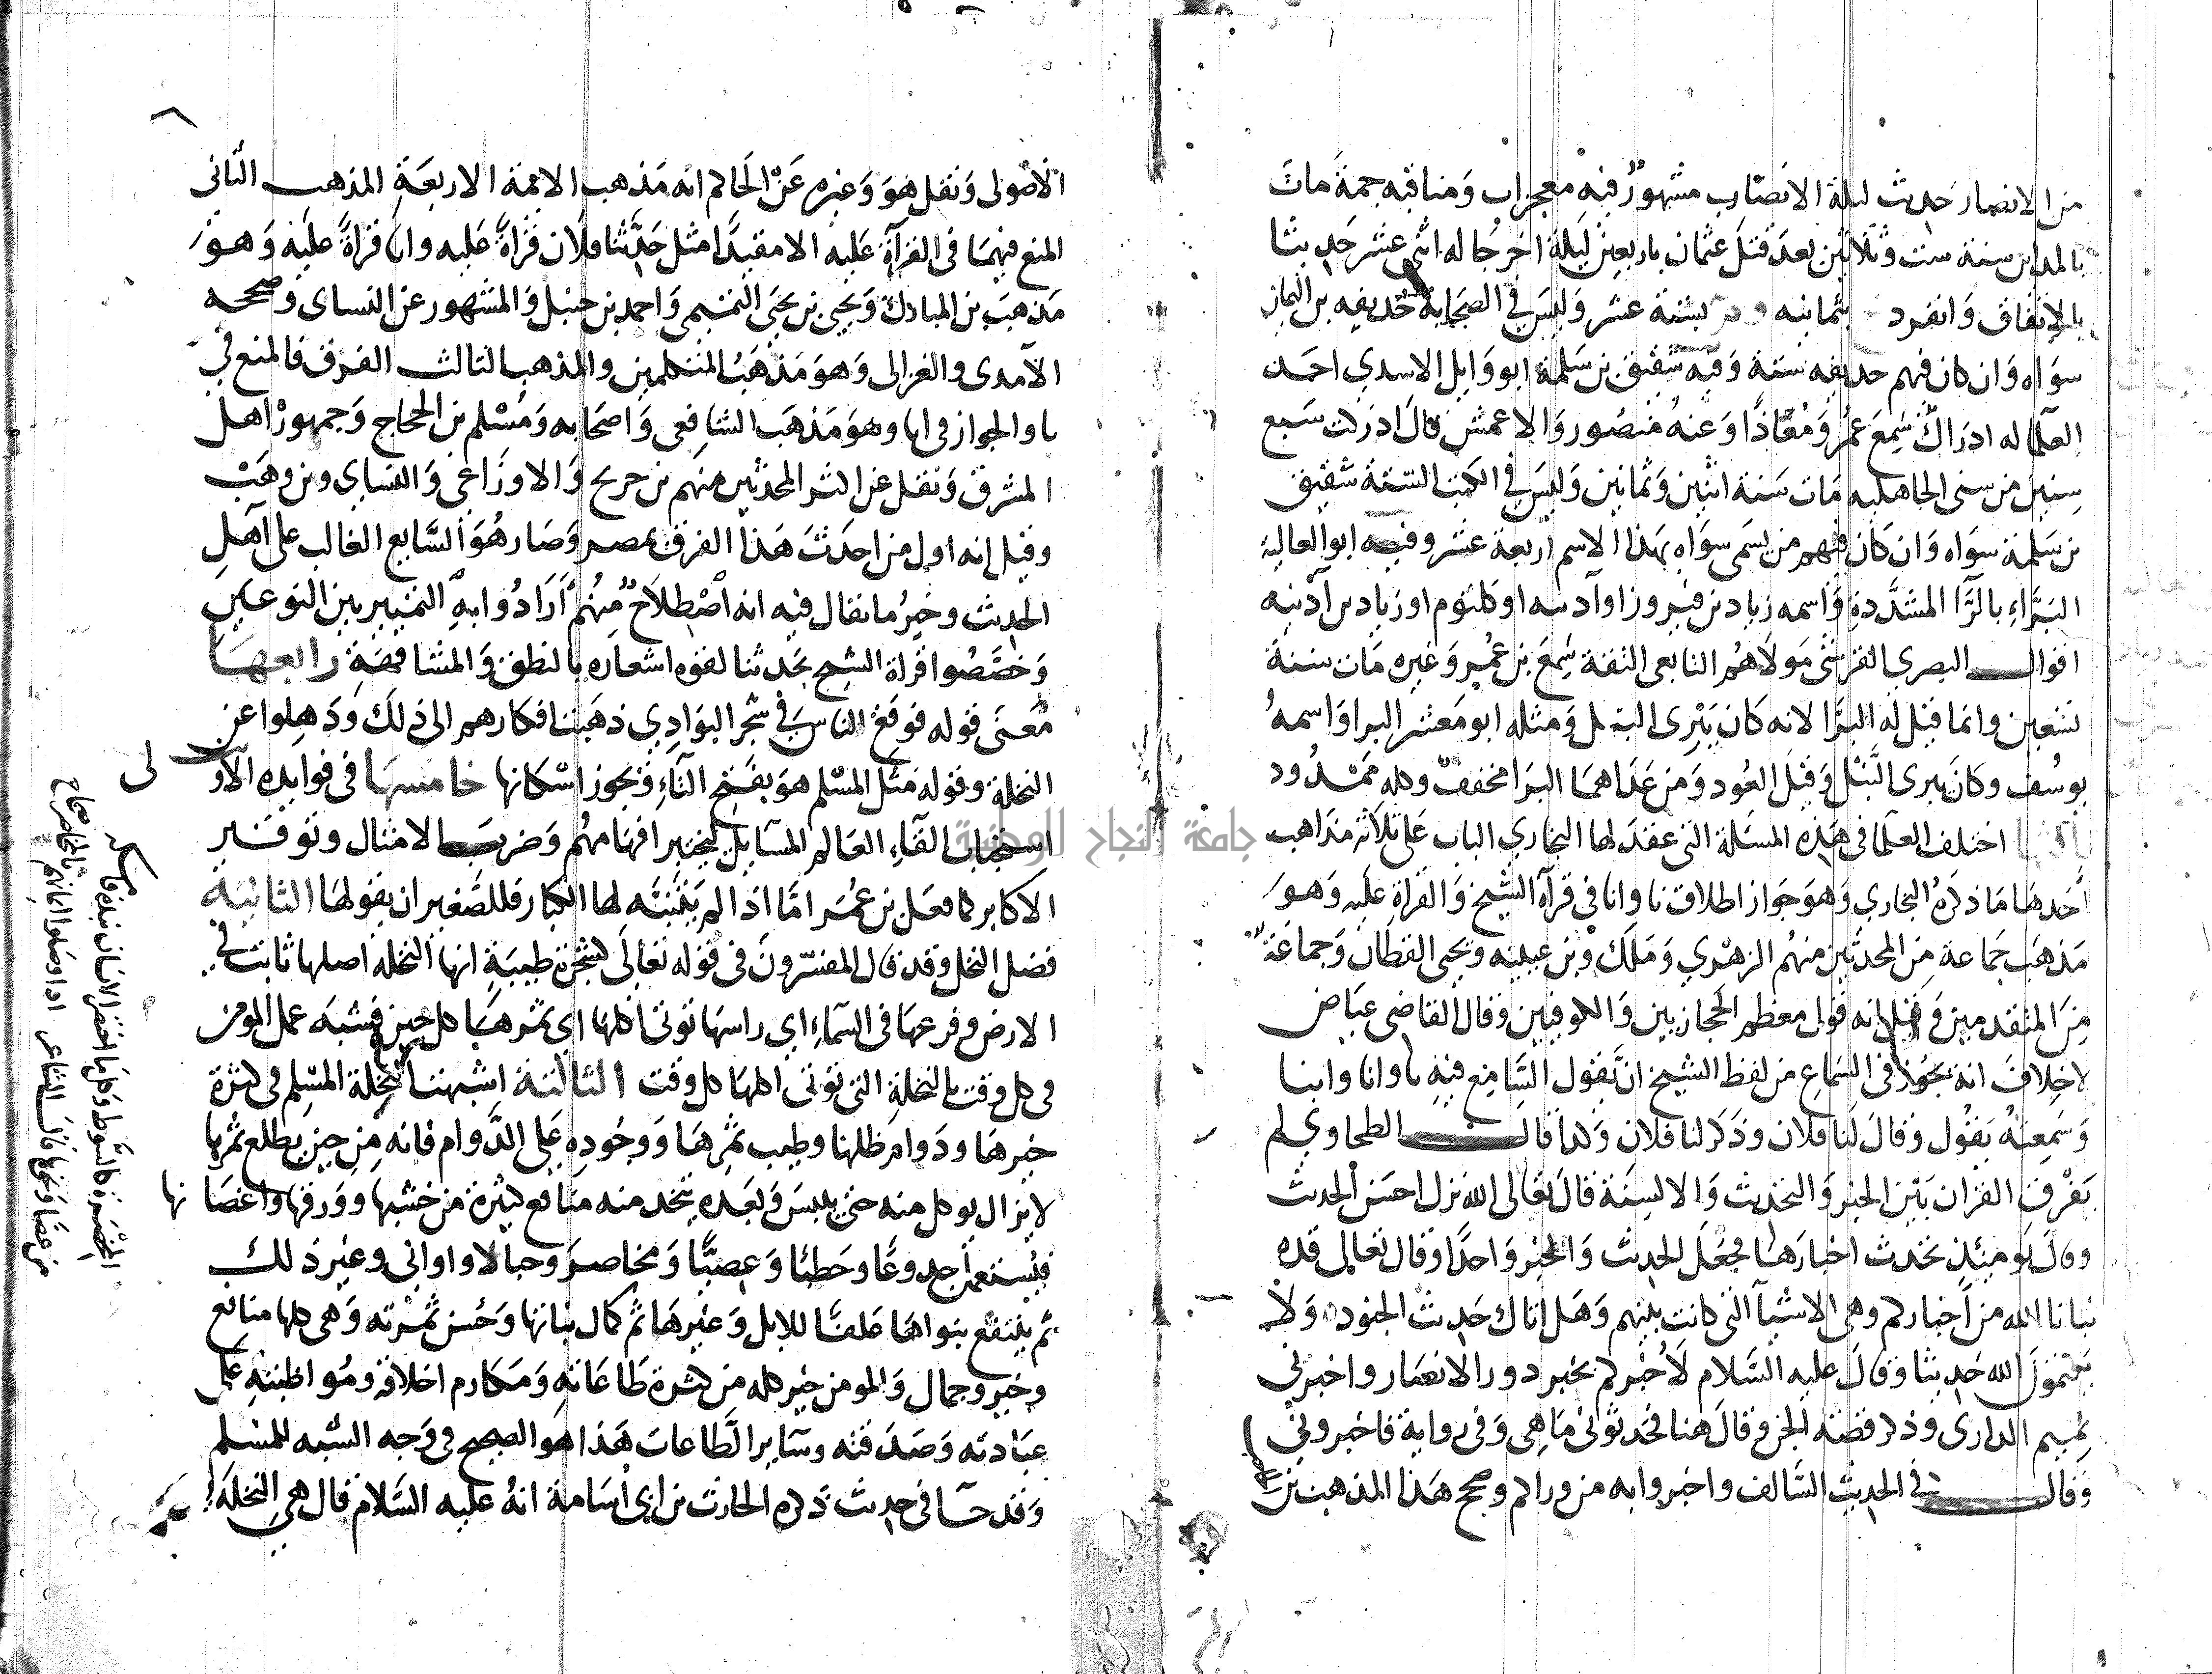 من الانصار حديث ليلة الاحزاب مشهور فيه معجزات ومناقبه جمة مات
بالمداين سنة ست وثلاثين بعد قتل عثمان باربعين ليلة اخرجا له اثني عشر حديثا
بالاتفاق وانفرد بثمانيه و بسبعة عشر وليس في الصحابة حذيفه بن اليمان
سواه وان كان فيهم حذيفه ستة وفيه شقيق بن سلمة ابو وايل الاسدي احد
العلما له ادراك سمع عمر ومعاذا وعنه منصور والاعمش قال ادركت سبع
سنين من سني الجاهليه مات سنة اثنين وثمانين وليس في الكتب الستة شقيق
بن سلمة سواه وان كان فيهم من يسمى سواه بهذا الاسم اربعة عشر وفيه ابو العالية
البراء بالرا المشددة واسمه زياد بن فيروز او آدينه او كلثوم او زياد بن آدينه
اقوال البصري القرشي مولاهم التابعي الثقة سمع بن عمير وغيره مات سنة
تسعين وانما قيل له البرا لانه كان يبري النبل ومثله ابو معشر البرا واسمه
يوسف وكان يبري النبل وقيل العود ومن عداهما البرا مخفف وكله ممدود
اختلف العلما في هذه المسئلة التي عقد لها البخاري الباب على ثلاثة مذاهب
احدها ما ذكره البخاري وهو جواز اطلاق نا وانا في قرآة الشيخ والقراة عليه وهو
مذهب جماعة من المحدثين منهم الزهري وملك وبن عيينه ويحيى القطان وجماعة
من المتقدمين وقيل انه قول معظم الحجازيين والكوفيين وقال القاضي عياض
لا خلاف انه يجوز في السماع من لفظ الشيخ ان يقول السامع فيه نا وانا وانبا
وسمعته يقول وقال لنا فلان وذكر لنا فلان وكذا قال الطحاوي لم
يفرق القران بين الخبر والتحديث والا لسنة قال تعالى الله نزل احسن الحديث
وقال يومئذ تحدث اخبارها فجعل الحديث والخبر واحدا وقال تعالى قد
نبانا الله من اخباركم وهي الاشيآ التي كانت بينهم وهل اتاك حديث الجنود ولا
يكتمون الله حديثا وقال عليه السلام لاخبركم بخير دور الانصار واخبرني
تميم الداري وذكر قصة الجن وقال هنا فحدثوني ما هي وفي رواية فاخبروني
وقال في الحديث السالف واخبروا به من وراكم وصحح هذا المذهب بن
الاصولي ونقل هو وغيره عن الحاكم انه مذهب الايمة الاربعة المذهب الثاني
المنع فيهما في القرآة عليه الا مقيدا مثل حدثنا فلان قراة عليه وانا قراة عليه وهو
مذهب بن المبارك ويحيى بن يحيى التميمي واحمد بن حنبل والمشهور عن النساي وصححه
الآمدي والغزالي وهو مذهب المتكلمين والمذهب الثالث الفرق فالمنع في
نا والجواز في انا وهو مذهب الشافعي واصحابه ومسلم بن الحجاج وجمهور اهل
المشرق ونقل عن اكثر المحدثين منهم بن جريج والاوزاعي والنساي وبن وهب
وقيل انه اول من احدث هذا الفرق بمصر وصار هو السايع الغالب على آهل
الحديث وخير ما يقال فيه انه اصطلاح منهم ارادوا به التمييز بين النوعين
وخصصوا قراة الشيخ بحدثنا لقوه اشعاره بالنطق والمشافهة رابعها
معنى قوله فوقع الناس في شجر البوادي ذهبت افكارهم الى ذلك وذهلوا عن
النخلة وقوله مثل المسلم هو بفتح الثاء ويجوز اسكانها خامسها في فوايده الاو
لى
استحباب القاء العالم المسايل ليختبر افهامهم وضرب الامثال وتوقير
الاكابر كما فعل بن عمر اما اذا لم يتنبه لها الكبار فللصغير ان يقولها الثانية
فضل النخل وقد قال المفسرون في قوله تعالى كشجرة طيبة انها النخله اصلها ثابت في
الارض وفرعها في السماء اي راسها تؤتى اكلها اي ثمرها كل حين فشبه عمل المومن
في كل وقت بالنخلة التي توتى اكلها كل وقت الثالثة اشبهت النخلة المسلم في كثرة
خيرها ودوام ظلها وطيب ثمرها ووجوده على الدوام فانه من حين يطلع ثمرها
لا يزال يوكل منه حتى ييبس وبعده يتخد منه منافع كثيرة من خشبها وورقها واغصا نها
فيستعمل جدوعا وحطبا وعصيا ومخاصر وحبالا واواني وغير ذلك
ثم ينتفع بنواها علفا للابل وغيرها ثم كمال نباتها وحسن ثمرته وهي كلها منافع
وخير وجمال والمومن خير كله من كثرة طاعاته ومكارم اخلاقه ومواظبته على
عبادته وصدقته وساير الطاعات هذا هو الصحيح في وجه الشبه للمسلم
وقد جآ في حديث ذكره الحارث بن ابي اسامة انه عليه السلام قال هي النخلة
المخصرة كالسوط وكل ما اختصر الانسان بيده فامسكه
من عصا ونحوها قال الشاعر اذا وصلوا ايمانهم بالمخاصر صحاح
جامعة النجاح الوطنية